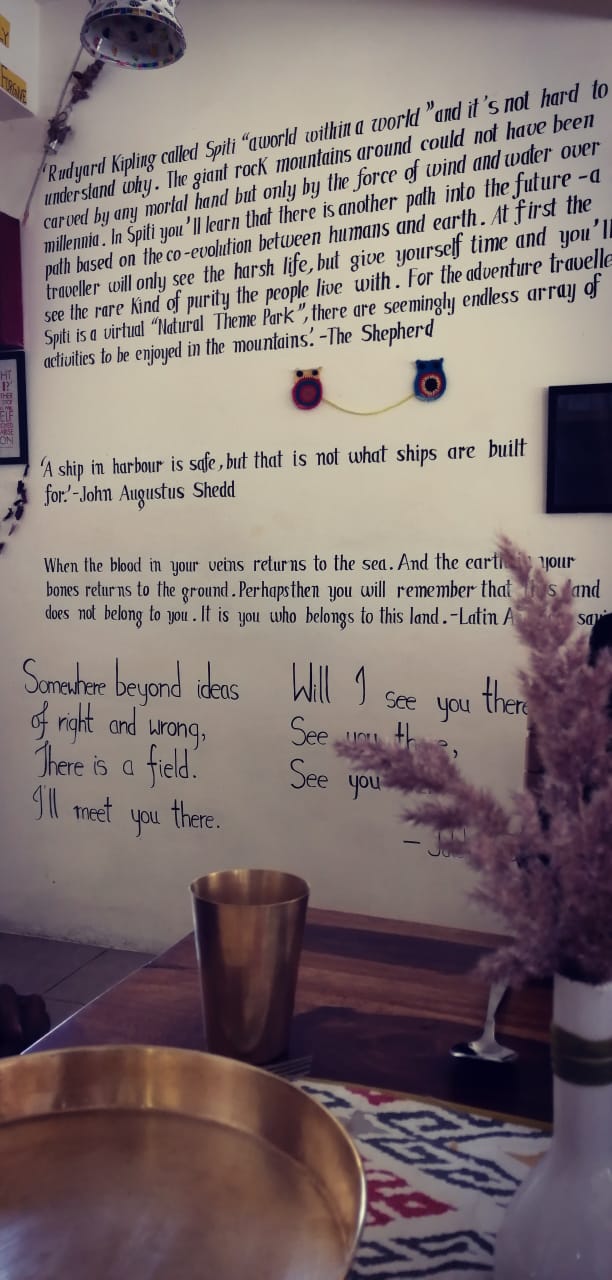 LY
FORGIVE
'Rudyard Kipling called Spiti "aworld within a world "and it's not hard to
understand why. The giant rock mountains around could not have been
carved by any mortal hand but only by the force of wind and water over
millennia. In Spiti you'll learn that there is another path into the future -a
path based on the co-evolution between humans and earth. At first the
traveller will only see the harsh life, but give yourself time and you'll
see the rare kind of purity the people live with. For the adventure travelle
Spiti is a virtual "Natural Theme Park", there are seemingly endless array of
activities to be enjoyed in the mountains.' -The Shepherd
'A ship in harbour is safe, but that is not what ships are built
for.'-John Augustus Shedd
When the blood in your veins returns to the sea. And the earth your
bones returns to the ground. Perhaps then you will remember that and
does not belong to you. It is you who belongs to this land.-Latin
Somewhere beyond ideas
of right and wrong,
There is a field.
I'll meet you there.
Will I see you there
See you
See you